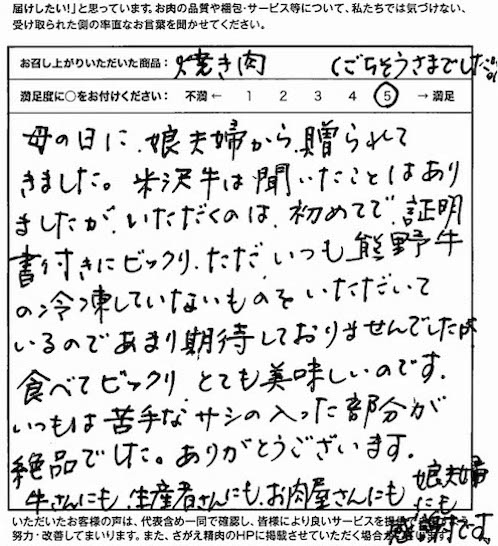 届けしたい！」と思っています。お肉の品質や梱包・サービス等について、私たちでは気づけない、
受け取られた側の率直なお言葉を聞かせてください。
お召し上がりいただいた商品： 焼き肉 （ごちそうさまでした。
満足度に○をお付けください： 不満 ← 1 2 3 4 5 → 満足
母の日に、娘夫婦から、贈られて
きました。米沢牛は聞いたことはあり
ましたが、いただくのは、初めてで、証明
書付きにビックリ、ただ、いつも熊野牛
の冷凍していないものをいただいて
いるのであまり期待しておりませんでしたが
食べてビックリ、とても美味しいのです。
いつもは苦手なサシの入った部分が
絶品でした。ありがとうございます。
牛さんにも、生産者さんにも、お肉屋さんにも
娘夫婦
にも
感謝です。
いただいたお客様の声は、代表含め一同で確認し、皆様により良いサービスを提供
努力・改善してまいります。また、さがえ精肉のHPに掲載させていただく場合が